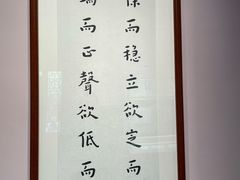 徐而穩立欲定而
端而正聲欲低而